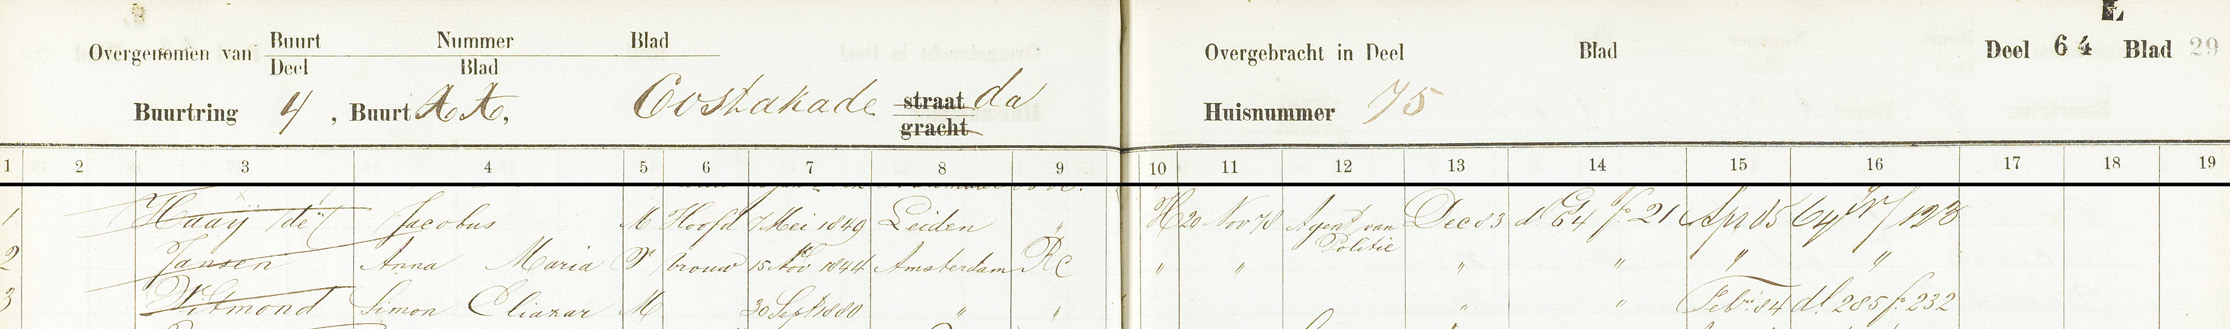 E
Overgenomen van Buurt Nummer Blad
Deel Blad
Overgebracht in Deel Blad Deel 64 Blad 29
Buurtring 4, Buurt Oostakade straat da
gracht
Huisnummer 75
1 2 3 4 5 6 7 8 9 10 11 12 13 14 15 16 17 18 19
1 Haaij de Jacobus M Hoofd 7 Mei 1849 Leiden " H 20 Nov 78 Agent van Politie Dec 83 dl 64 f. 21 Apr 85
2 Jansen Anna Maria V vrouw 15 1844 Amsterdam RC " " " " " "
3 Witmond Simon Eliazar M 30 Sept 1880 " " " " Febr. 84 dl. 285 f. 232